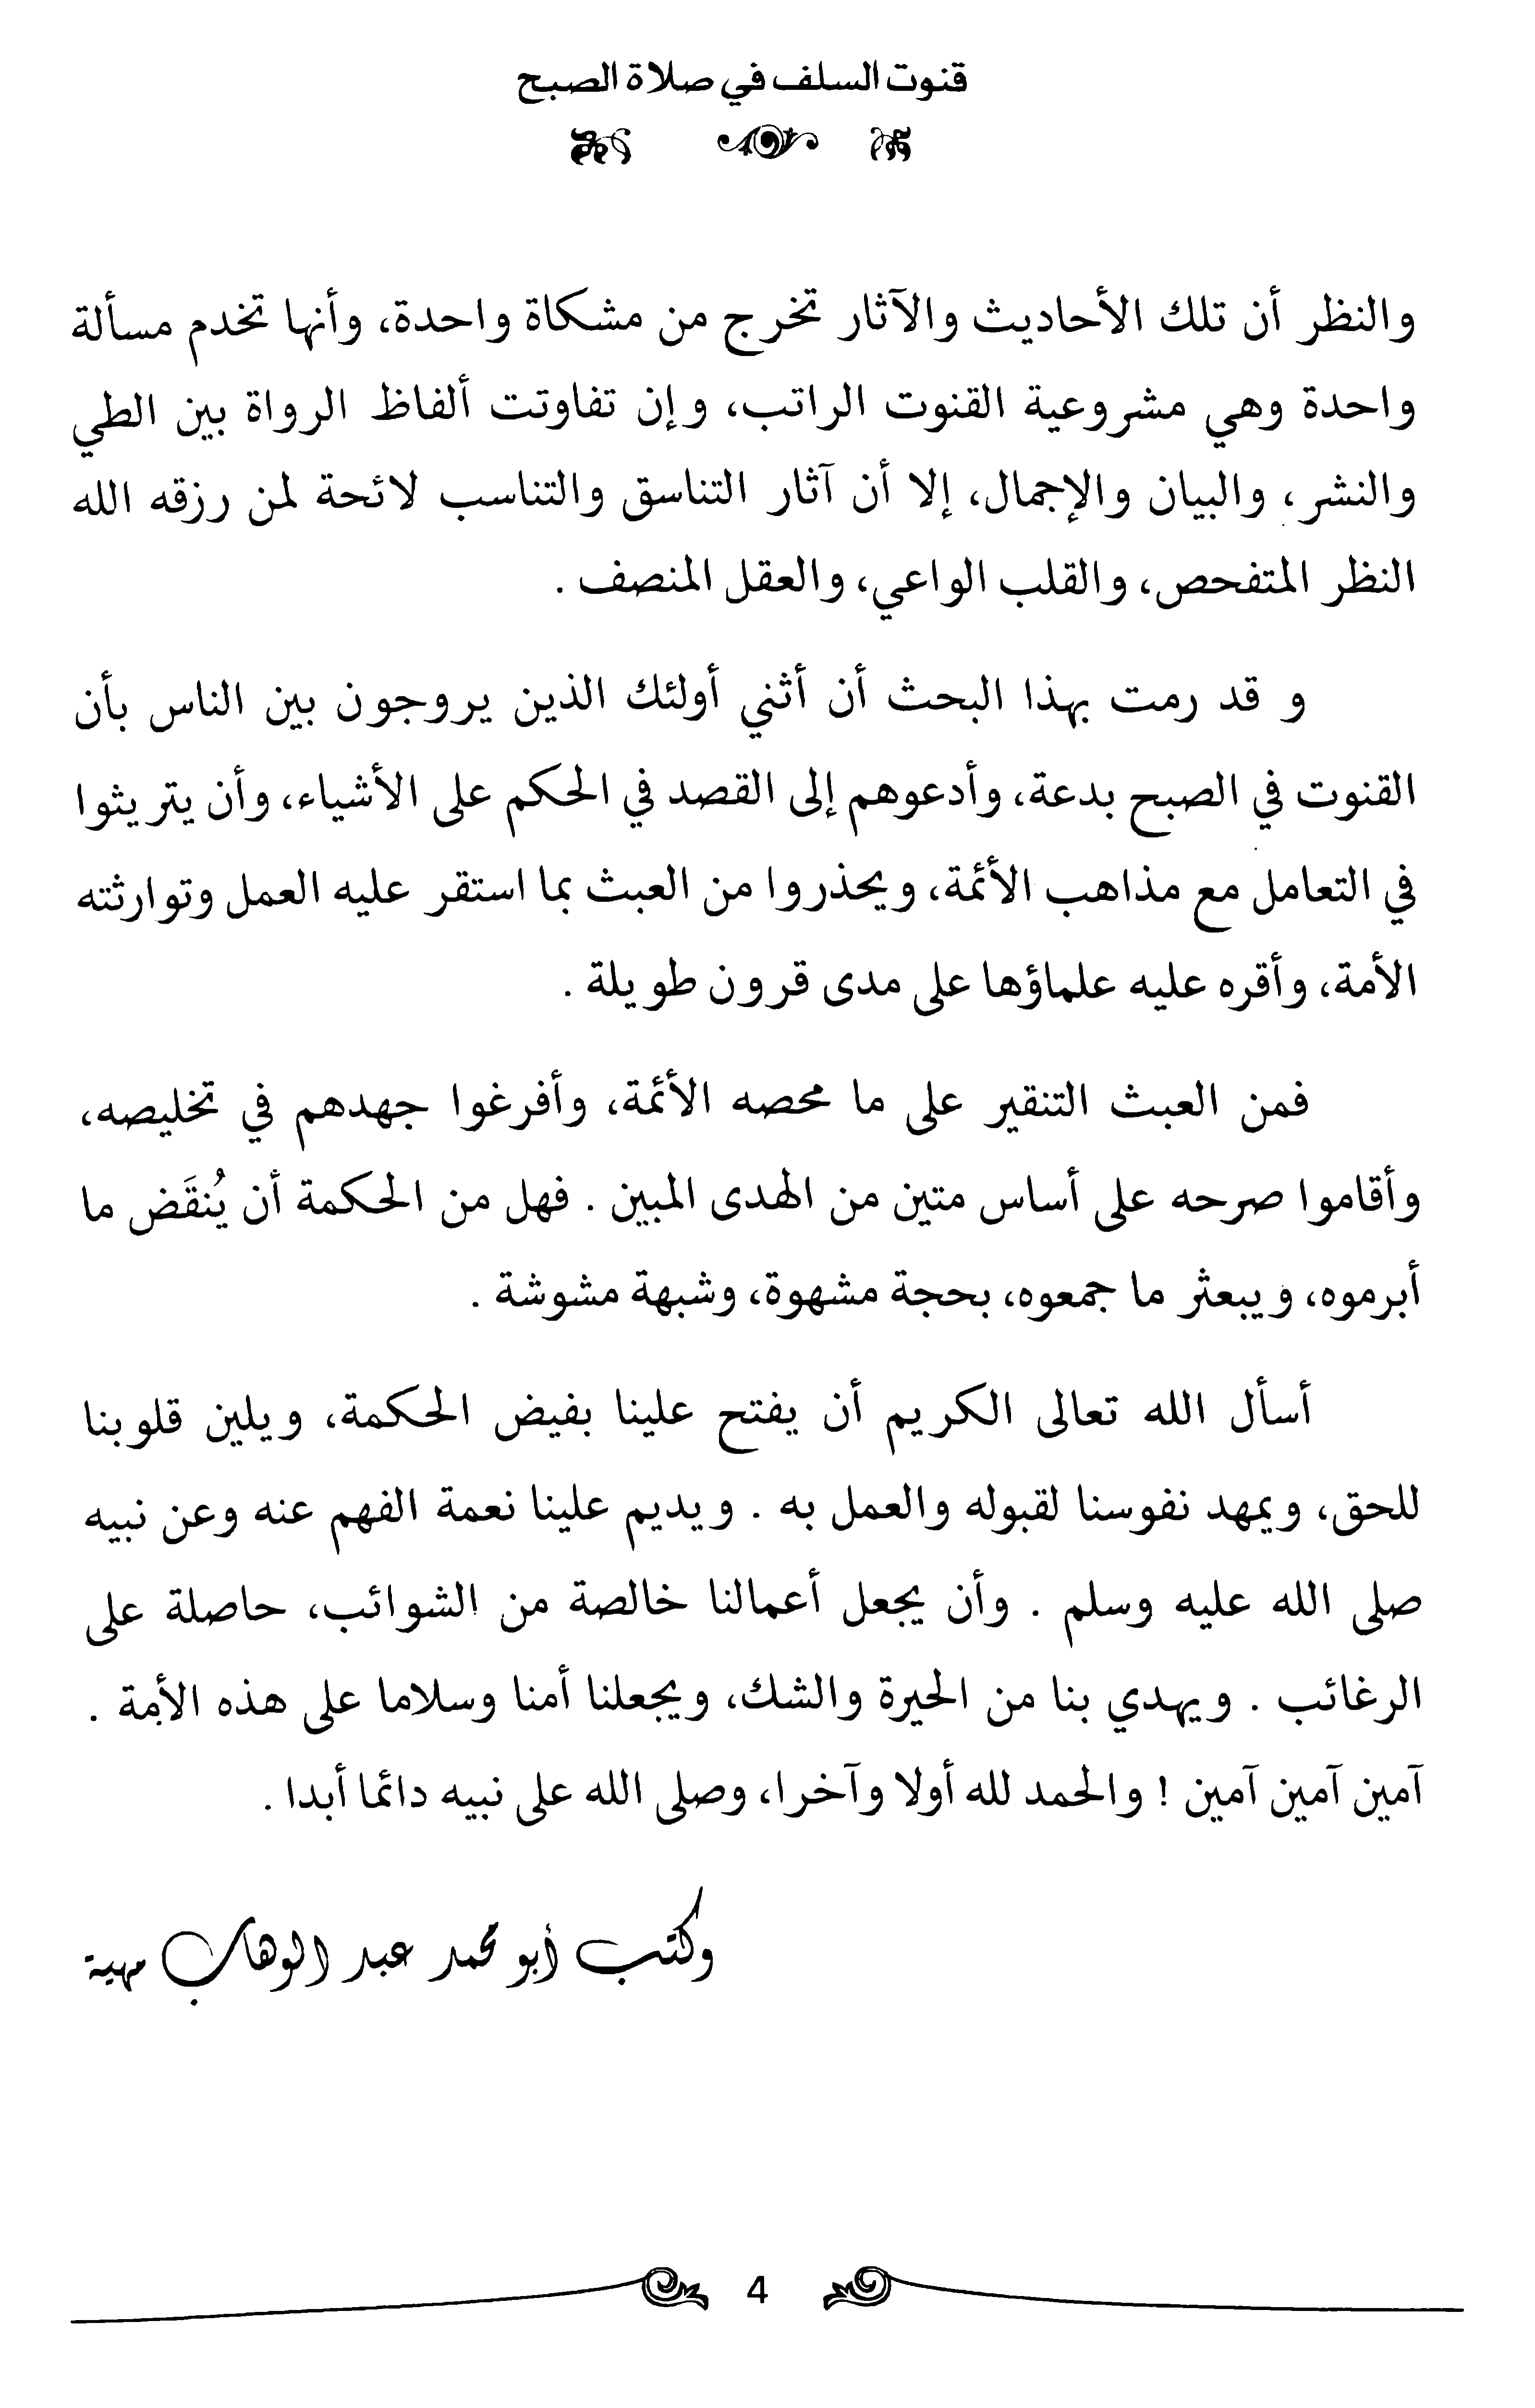 قنوت السلف في صلاة الصبح
والنظر أن تلك الأحاديث والآثار تخرج من مشكاة واحدة، وأنها تخدم مسألة
واحدة وهي مشروعية القنوت الراتب، وإن تفاوتت ألفاظ الرواة بين الطي
والنشر، والبيان والإجمال، إلا أن آثار التناسق والتناسب لائحة لمن رزقه الله
النظر المتفحص، والقلب الواعي، والعقل المنصف .
و قد رمت بهذا البحث أن أثني أولئك الذين يروجون بين الناس بأن
القنوت في الصبح بدعة، وأدعوهم إلى القصد في الحكم على الأشياء، وأن يتريثوا
في التعامل مع مذاهب الأئمة، ويحذروا من العبث بما استقر عليه العمل وتوارثته
الأمة، وأقره عليه علماؤها على مدى قرون طويلة .
فمن العبث التنقير على ما محصه الأئمة، وأفرغوا جهدهم في تخليصه،
وأقاموا صرحه على أساس متين من الهدى المبين . فهل من الحكمة أن يُنقَض ما
أبرموه، ويبعثر ما جمعوه، بحجة مشهوة، وشبهة مشوشة .
أسأل الله تعالى الكريم أن يفتح علينا بفيض الحكمة، ويلين قلوبنا
للحق، ويمهد نفوسنا لقبوله والعمل به . ويديم علينا نعمة الفهم عنه وعن نبيه
صلى الله عليه وسلم . وأن يجعل أعمالنا خالصة من الشوائب، حاصلة على
الرغائب . ويهدي بنا من الحيرة والشك، ويجعلنا أمنا وسلاما على هذه الأمة .
آمين آمين آمين ! والحمد لله أولا وآخرا، وصلى الله على نبيه دائما أبدا .
وكتب أبو محمد عبد الوهاب مهية
4